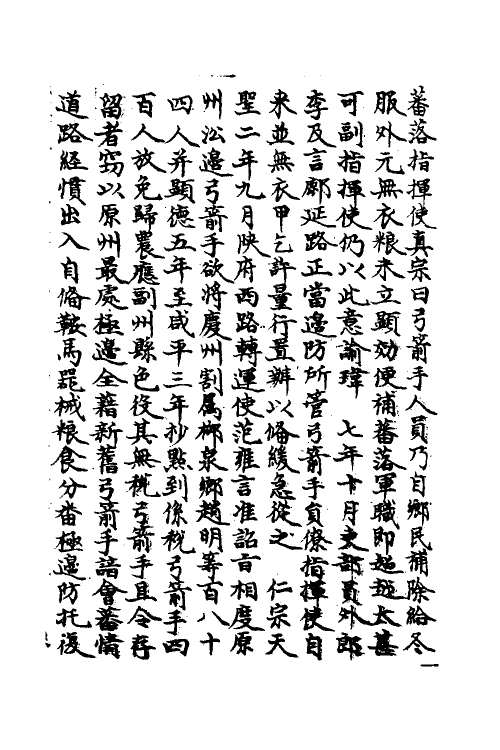 蕃落指揮使真宗曰弓箭手人員乃自鄉民補除給冬
服外元無衣粮未立顯効便補蕃落軍職即超越太甚
可副指揮使仍以此意諭瑋　七年十月吏部員外郎
李及言鄜延路正當邊防所管弓箭手負僚指揮使自
来並無衣甲乞許量行置辦以俻緩急從之　仁宗天
聖二年九月陜府西路轉運使范雍言准詔旨相度原
州沿邊弓箭手欲將慶州割属栁泉鄉趙明等百八十
四人并顯德五年至咸平三年抄㸃到係稅弓箭手四
百人放免歸農應副州縣色役其無稅弓箭手且令存
留者竊以原州最處極邊全藉新舊弓箭手諳會蕃情
道路經慣出入自俻鞍馬噐械粮食分畨極邊防托復
一